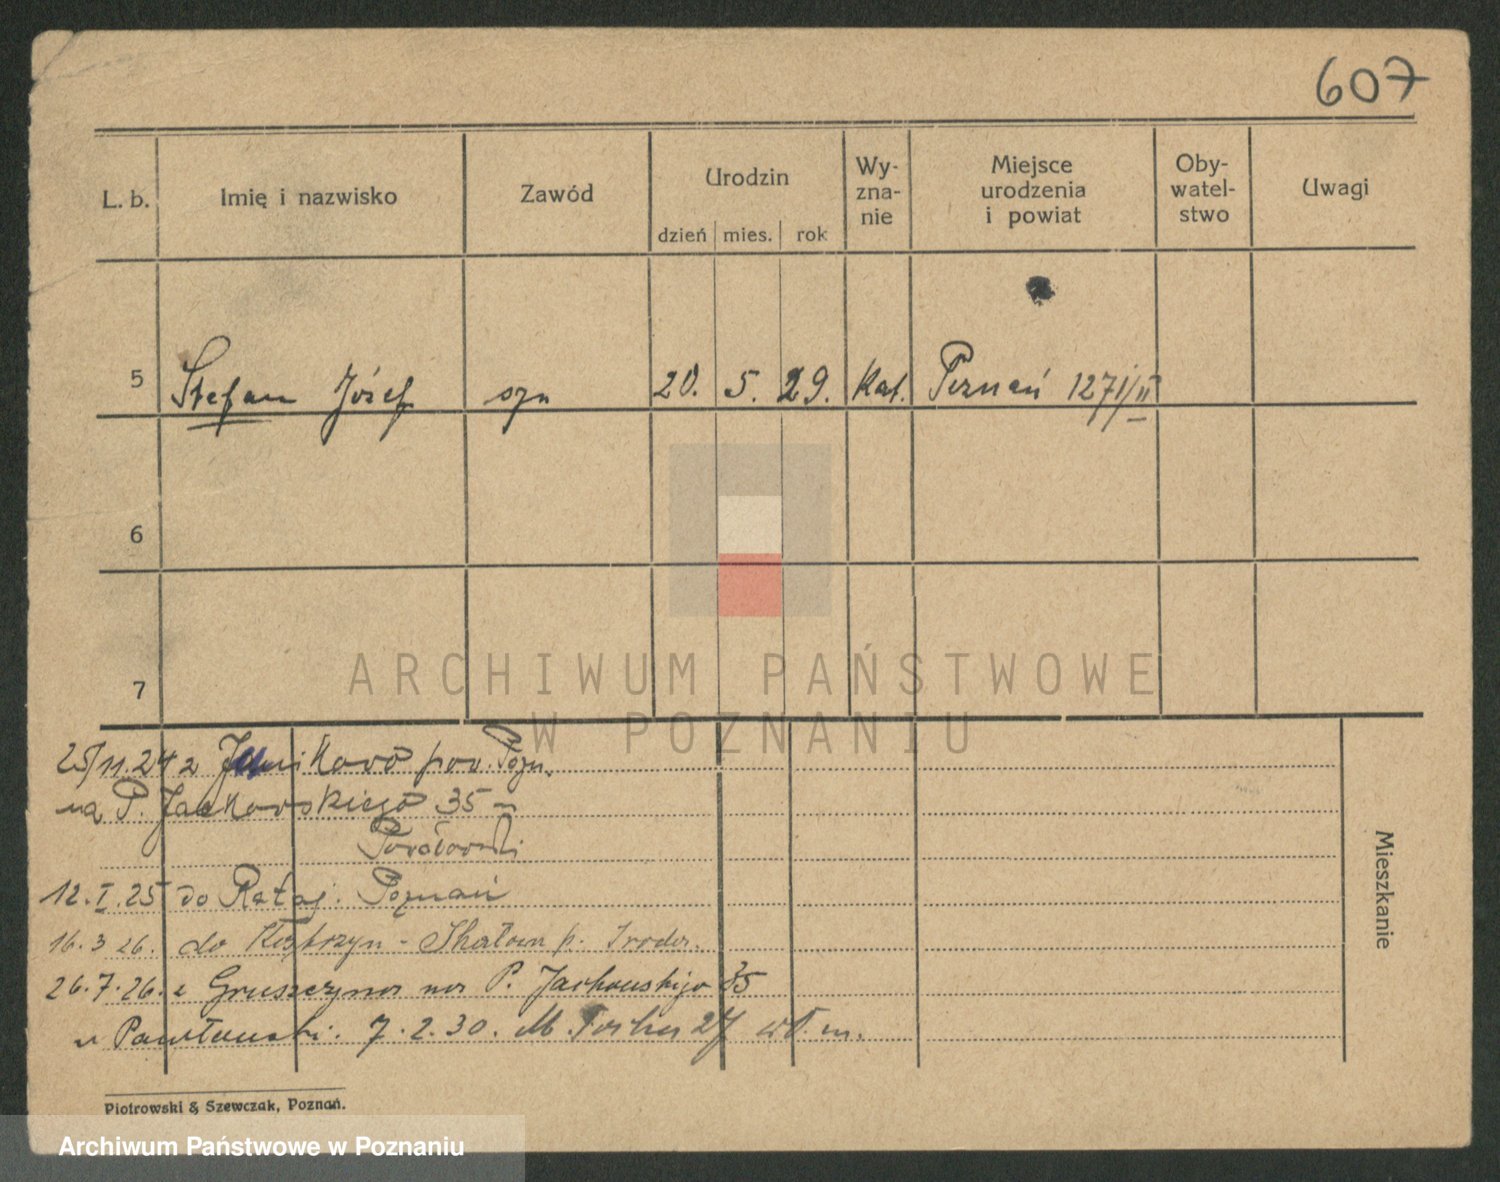 607
L. b. Imię i nazwisko Zawód Urodzin Wy-zna-nie Miejsce urodzenia i powiat Oby-watel-stwo Uwagi
dzień mies. rok
5 Stefan Józef syn 20. 5. 29. Kat. Poznań 1271/II
6
7
ARCHIWUM PAŃSTWOWE
W POZNANIU
25/11.24 z Junikowo pow. Pozn.
na P. Jackowskiego 35
12.I.25 do Rataj. Poznań
16.3 26. do p.
26.7.26. z Gruszczyna na P. Jackowskiego 35
u Pawłowski. 7.2.30. M. 27 wł. m.
Mieszkanie
Piotrowski & Szewczak, Poznań.
Archiwum Państwowe w Poznaniu